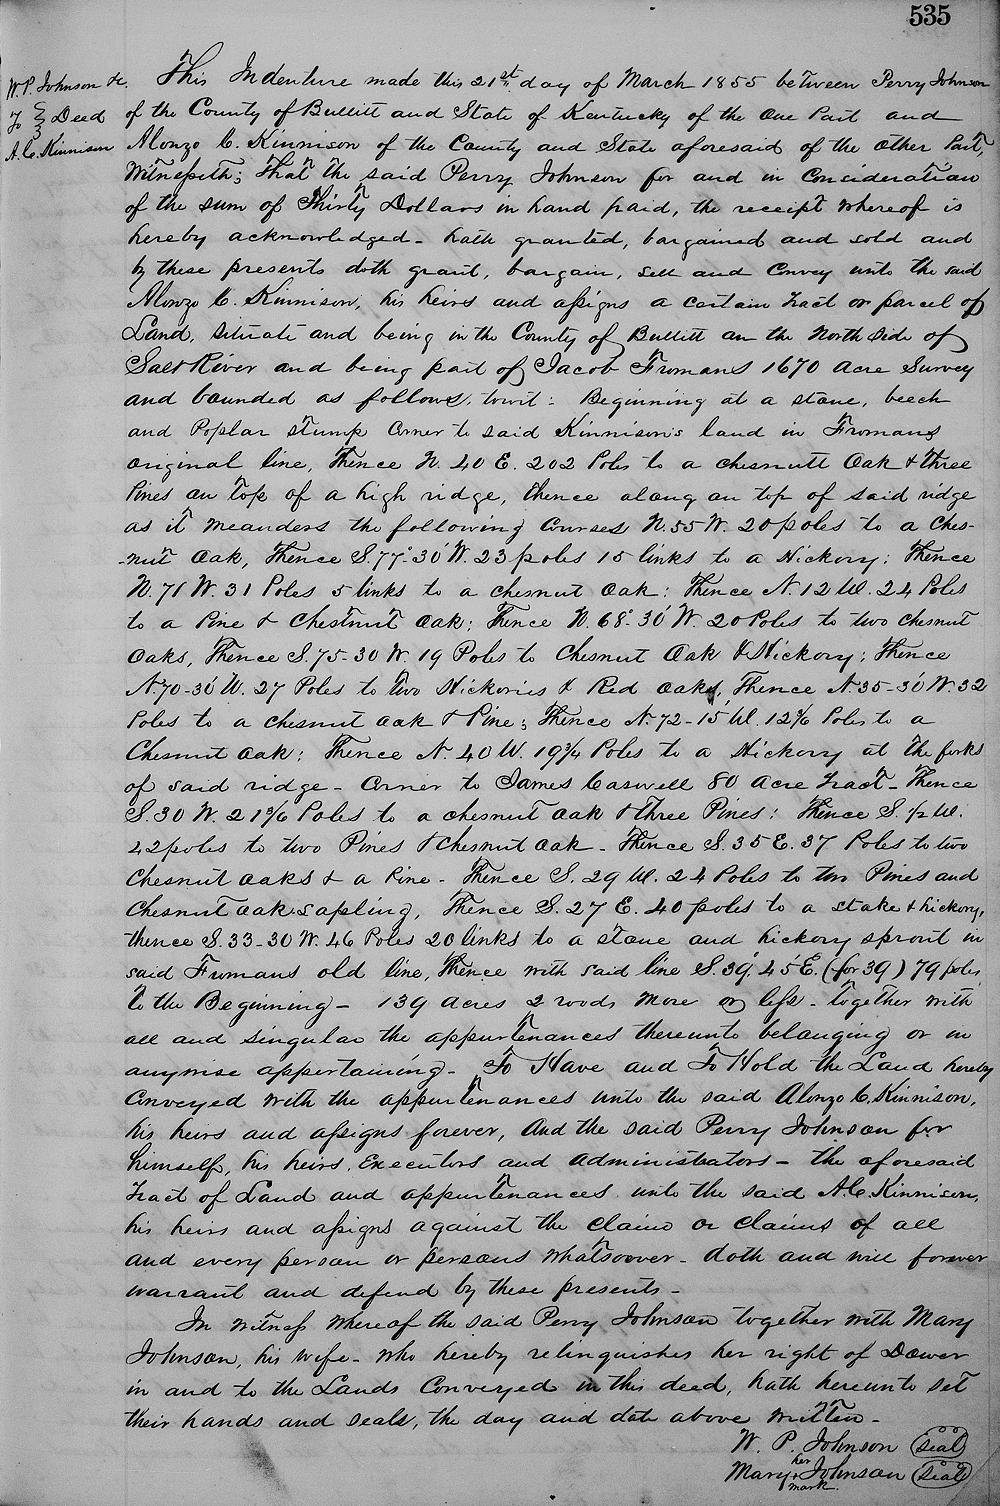 535
W. P. Johnson &c.
To } Deed
A. C. Kinnison
This Indenture made this 21st day of March 1855 between Perry Johnson
of the County of Bullitt and State of Kentucky of the One Part and
Alonzo C. Kinnison of the County and State aforesaid of the Other Part,
Witnesseth; That the said Perry Johnson for and in Consideration
of the sum of Thirty Dollars in hand paid, the receipt whereof is
hereby acknowledged - hath granted, bargained and sold and
by these presents doth grant, bargain, sell and Convey unto the said
Alonzo C. Kinnison, his heirs and assigns a certain Tract or parcel of
Land, situate and being in the County of Bullitt on the North side of
Salt River and being part of Jacob Fromans 1670 Acre Survey
and bounded as follows, towit: Beginning at a stone, beech
and Poplar stump Corner to said Kinnison's land in Fromans
original line, Thence N. 40 E. 202 Poles to a chesnutt Oak & three
Pines on top of a high ridge, thence along on top of said ridge
as it meanders the following Courses N. 55 W. 20 poles to a Ches-
-nut Oak, Thence S. 77°-30' W. 23 poles 15 links to a Hickory; Thence
N. 71 W. 31 Poles 5 links to a chesnut Oak: Thence N. 12 W. 24 Poles
to a Pine & Chestnut Oak; Thence N. 68°-30' W. 20 Poles to two chesnut
Oaks, Thence S. 75-30 W. 19 Poles to Chesnut Oak & Hickory; Thence
N. 70-30' W. 27 Poles to two Hickories & Red Oaks, Thence N. 35-30' W. 32
Poles to a chesnut oak & Pine; Thence N. 72-15' W. 12 5/6 Poles to a
Chesnut Oak; Thence N. 40 W. 19 3/4 Poles to a Hickory at the forks
of said ridge - Corner to James Caswell 80 Acre Tract - Thence
S. 30 W. 21 5/6 Poles to a chesnut Oak & three Pines; Thence S. 1/2 W.
42 poles to two Pines & Chesnut oak - Thence S. 35 E. 37 Poles to two
Chesnut Oaks & a Pine - Thence S. 29 W. 24 Poles to two Pines and
Chesnut Oak sapling, Thence S. 27 E. 40 poles to a stake & hickory,
thence S. 33-30 W. 46 Poles 20 links to a stone and hickory sprout in
said Fromans old line, Thence with said line S. 39°. 45' E. (for 39) 79 poles
to the Beginning - 139 Acres 2 roods more or less - together with
all and singular the appurtenances thereunto belonging or in
anywise appertaining - To Have and To Hold the Land hereby
Conveyed with the appurtenances unto the said Alonzo C. Kinnison,
his heirs and assigns forever, And the said Perry Johnson for
himself, his heirs, Executors and administrators - the aforesaid
Tract of Land and appurtenances unto the said A. C. Kinnison,
his heirs and assigns against the claim or claims of all
and every person or persons whatsoever - doth and will forever
warrant and defend by these presents -
In witness whereof the said Perry Johnson together with Mary
Johnson, his wife - who hereby relinquishes her right of Dower
in and to the Lands Conveyed in this deed, hath hereunto set
their hands and seals, the day and date above written -
W. P. Johnson (Seal)
her
Mary + Johnson (Seal)
mark.